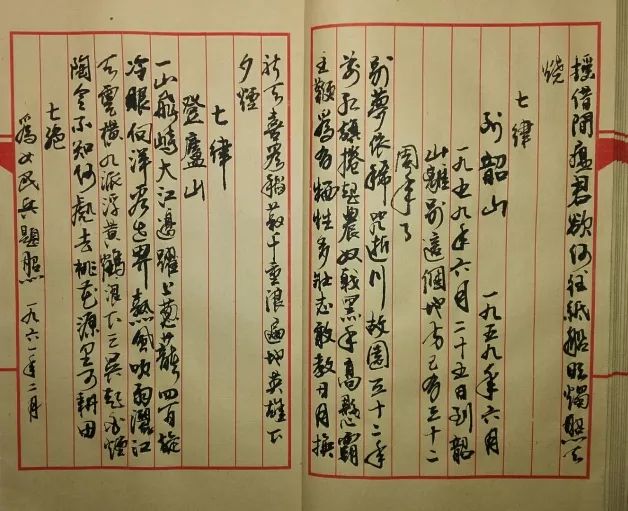 搖借問瘟君欲何往紙船明燭照天
燒
七律
到韶山 一九五九年六月
一九五九年六月二十五日到韶
山離別這個地方已有三十二
周年了
別夢依稀咒逝川故園三十二年
前紅旗捲起農奴戟黑手高懸霸
主鞭為有犧牲多壯志敢教日月換
新天喜看稻菽千重浪遍地英雄下
夕煙
七律
登廬山
一山飛峙大江邊躍上葱蘢四百旋
冷眼向洋看世界熱風吹雨灑江
天雲橫九派浮黃鶴浪下三吳起白煙
陶令不知何處去桃花源里可耕田
七绝
為女民兵題照 一九六一年二月